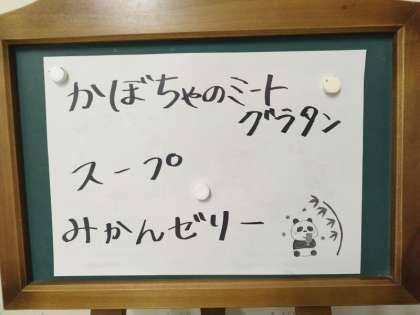 かぼちゃのミート
グラタン
スープ
みかんゼリー